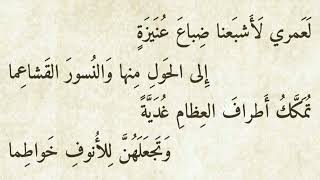 لَعَمري لَأَشبَعنا ضِباعَ عُنَيزَةٍ
إِلى الحَولِ مِنها وَالنُسورَ القَشاعِما
تُمَكَّكُ أَطرافَ العِظامِ غُدَيَّةً
وَتَجعَلَهُنَّ لِلأُنوفِ خَواطِما